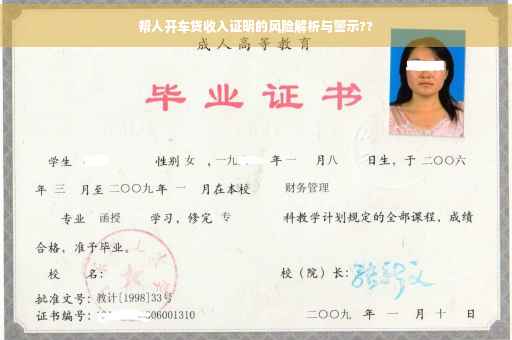 帮人开车贷收入证明的风险解析与警示??
成人高等教育
毕业证书
学生 性别 女 ,一九 年 一 月八 日生,于 二〇〇六
年 三 月至 二〇〇九 年 一 月在本校 财务管理
专业 函授 学习,修完 专 科教学计划规定的全部课程,成绩
合格,准予毕业。
校 名: 校(院)长:
批准文号:教计[1998]33号
证书编号: 06001310 二〇〇九 年 一 月 十 日